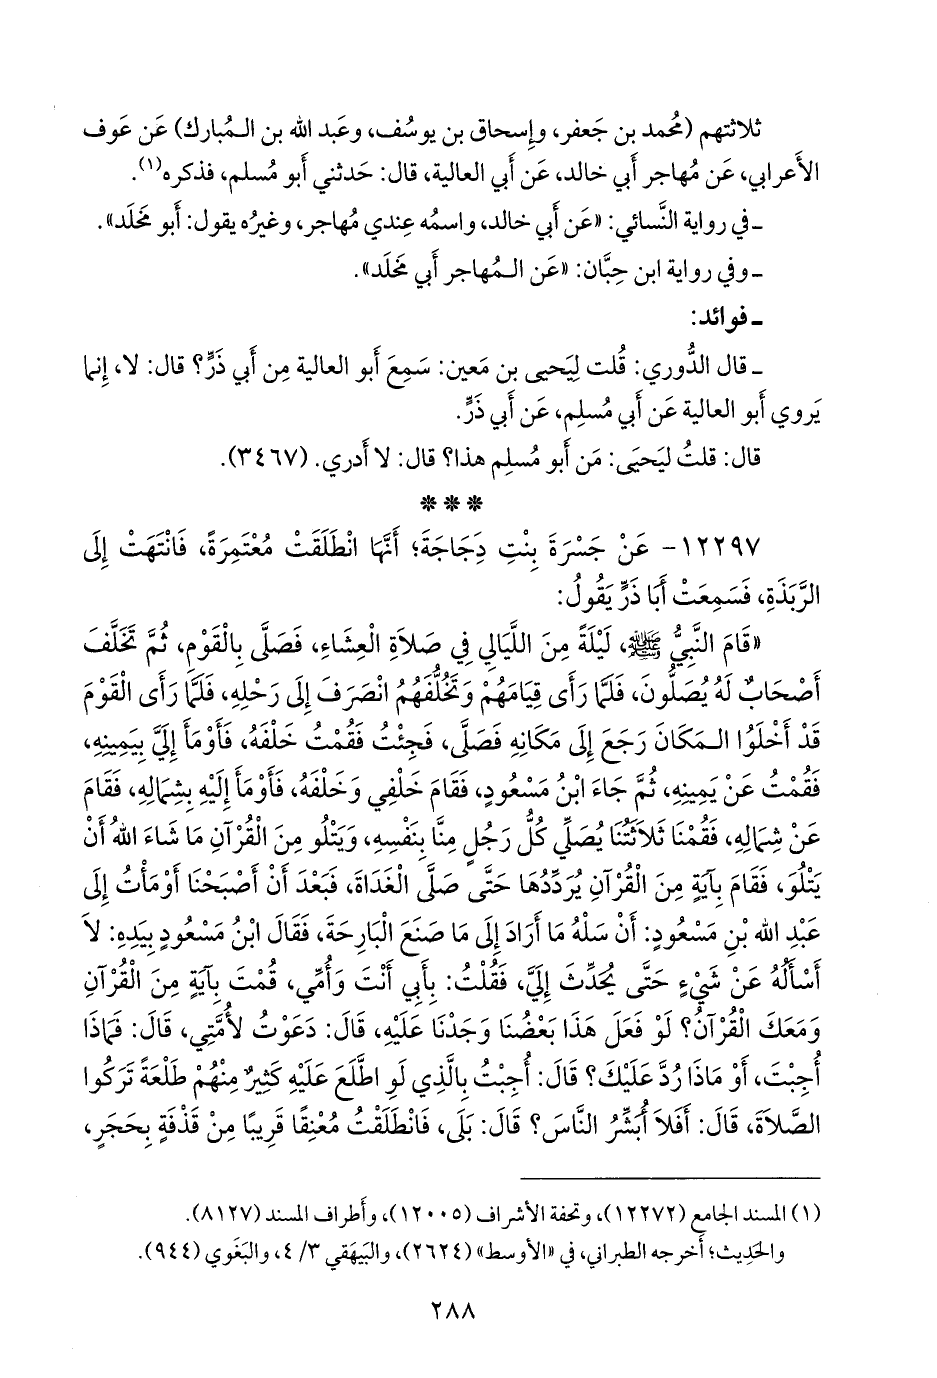 ثلاثتهم (مُحمد بن جَعفر، وإسحاق بن يوسُف، وعَبد الله بن الـمُبارك) عَن عَوف
الأَعرابي، عَن مُهاجر أَبي خالد، عَن أَبي العالية، قال: حَدثني أَبو مُسلم، فذكره(١).
ـ في رواية النَّسائي: «عَن أَبي خالد، واسمُه عِندي مُهاجر، وغيرُه يقول: أَبو مَخلَد».
ـ وفي رواية ابن حِبَّان: «عَن الـمُهاجر أَبي مَخلَد».
ـ فوائد:
ـ قال الدُّوري: قُلت لِيَحيى بن مَعين: سَمِعَ أَبو العالية مِن أَبي ذَرٍّ؟ قال: لا، إِنما
يَروي أَبو العالية عَن أَبي مُسلِم، عَن أَبي ذَرٍّ.
قال: قلتُ ليَحيَى: مَن أَبو مُسلِم هذا؟ قال: لا أَدري. (٣٤٦٧).
***
١٢٢٩٧- عَنْ جَسْرَةَ بِنْتِ دِجَاجَةَ؛ أَنَّهَا انْطَلَقَتْ مُعْتَمِرَةً، فَانْتَهَتْ إِلَى
الرَّبَذَةِ، فَسَمِعَتْ أَبَا ذَرٍّ يَقُولُ:
«قَامَ النَّبِيُّ ﷺ، لَيْلَةً مِنَ اللَّيَالِي فِي صَلاَةِ الْعِشَاءِ، فَصَلَّى بِالْقَوْمِ، ثُمَّ تَخَلَّفَ
أَصْحَابٌ لَهُ يُصَلُّونَ، فَلَمَّا رَأَى قِيَامَهُمْ وَتَخَلُّفَهُمُ انْصَرَفَ إِلَى رَحْلِهِ، فَلَمَّا رَأَى الْقَوْمَ
قَدْ أَخْلَوُا الـمَكَانَ رَجَعَ إِلَى مَكَانِهِ فَصَلَّى، فَجِئْتُ فَقُمْتُ خَلْفَهُ، فَأَوْمَأَ إِلَيَّ بِيَمِينِهِ،
فَقُمْتُ عَنْ يَمِينِهِ، ثُمَّ جَاءَ ابْنُ مَسْعُودٍ، فَقَامَ خَلْفِي وَخَلْفَهُ، فَأَوْمَأَ إِلَيْهِ بِشِمَالِهِ، فَقَامَ
عَنْ شِمَالِهِ، فَقُمْنَا ثَلاَثَتُنَا يُصَلِّي كُلُّ رَجُلٍ مِنَّا بِنَفْسِهِ، وَيَتْلُو مِنَ الْقُرْآنِ مَا شَاءَ اللهُ أَنْ
يَتْلُوَ، فَقَامَ بِآيَةٍ مِنَ الْقُرْآنِ يُرَدِّدُهَا حَتَّى صَلَّى الْغَدَاةَ، فَبَعْدَ أَنْ أَصْبَحْنَا أَوْمَأْتُ إِلَى
عَبْدِ الله بْنِ مَسْعُودٍ: أَنْ سَلْهُ مَا أَرَادَ إِلَى مَا صَنَعَ الْبَارِحَةَ، فَقَالَ ابْنُ مَسْعُودٍ بِيَدِهِ: لاَ
أَسْأَلُهُ عَنْ شَيْءٍ حَتَّى يُحَدِّثَ إِلَيَّ، فَقُلْتُ: بِأَبِي أَنْتَ وَأُمِّي، قُمْتَ بِآيَةٍ مِنَ الْقُرْآنِ
وَمَعَكَ الْقُرْآنُ؟ لَوْ فَعَلَ هَذَا بَعْضُنَا وَجَدْنَا عَلَيْهِ، قَالَ: دَعَوْتُ لأُمَّتِي، قَالَ: فَمَاذَا
أُجِبْتَ، أَوْ مَاذَا رُدَّ عَلَيْكَ؟ قَالَ: أُجِبْتُ بِالَّذِي لَوِ اطَّلَعَ عَلَيْهِ كَثِيرٌ مِنْهُمْ طَلْعَةً تَرَكُوا
الصَّلاَةَ، قَالَ: أَفَلاَ أُبَشِّرُ النَّاسَ؟ قَالَ: بَلَى، فَانْطَلَقْتُ مُعْنِقًا قَرِيبًا مِنْ قَذْفَةٍ بِحَجَرٍ،
(١) المسند الجامع (١٢٢٧٢)، وتحفة الأشراف (١٢٠٠٥)، وأَطراف المسند (٨١٢٧).
والحَدِيث؛ أَخرجه الطبراني، في «الأَوسط» (٢٦٢٤)، والبَيهَقي ٣/ ٤، والبَغَوي (٩٤٤).
٢٨٨